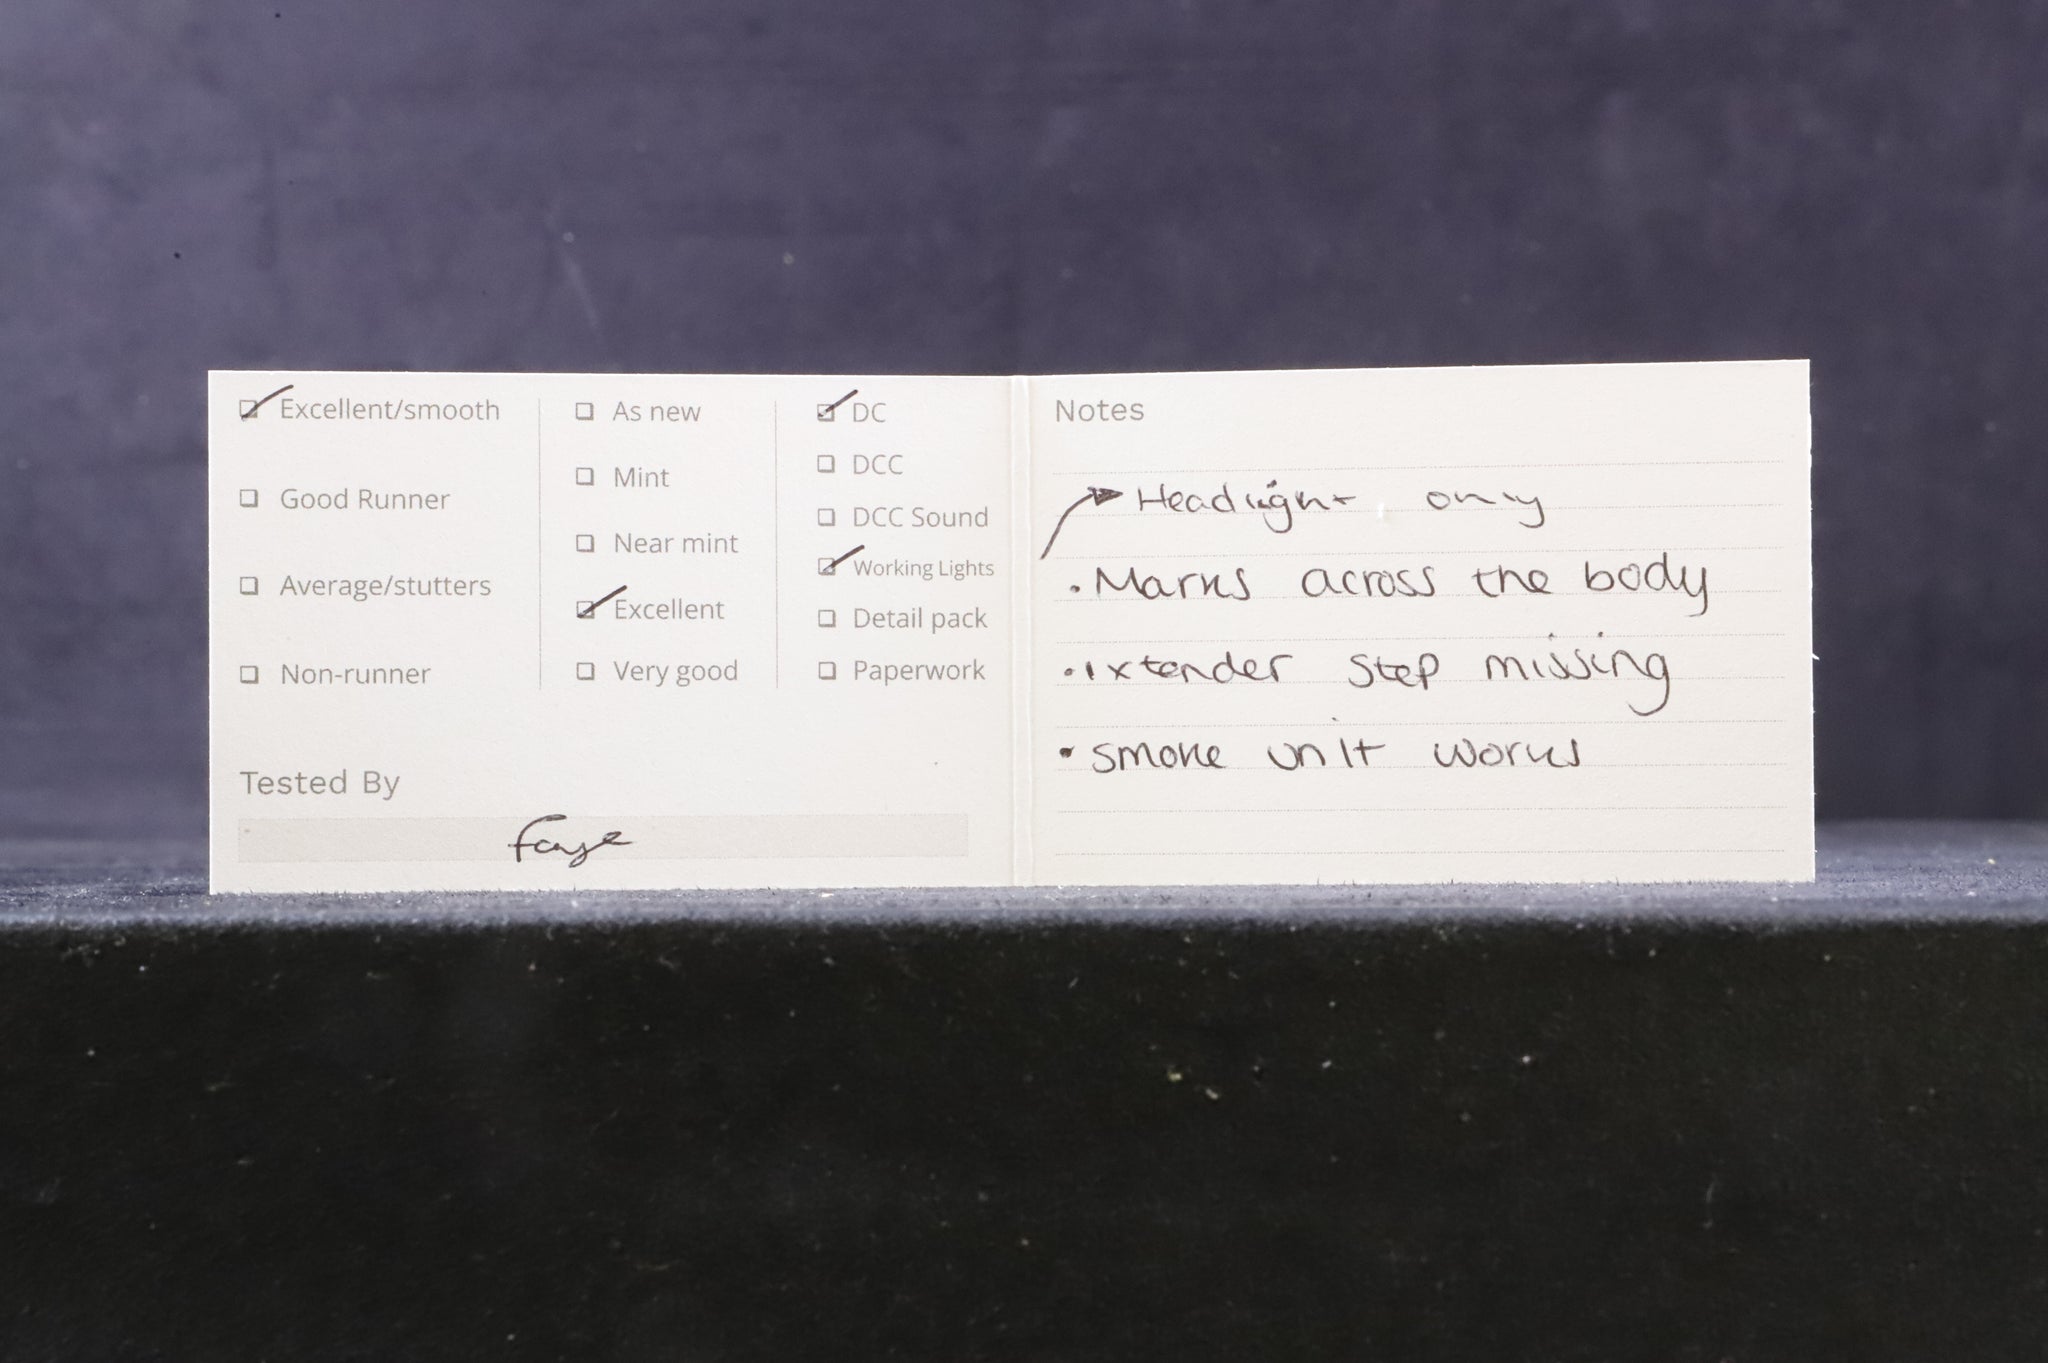 Excellent/smooth
Good Runner
Average/stutters
Non-runner
As new
Mint
Near mint
Excellent
Very good
DC
DCC
DCC Sound
Working Lights
Detail pack
Paperwork
Tested By
Faye
Notes
Headlight only
• Marks across the body
• 1 x tender step missing
• smoke unit works